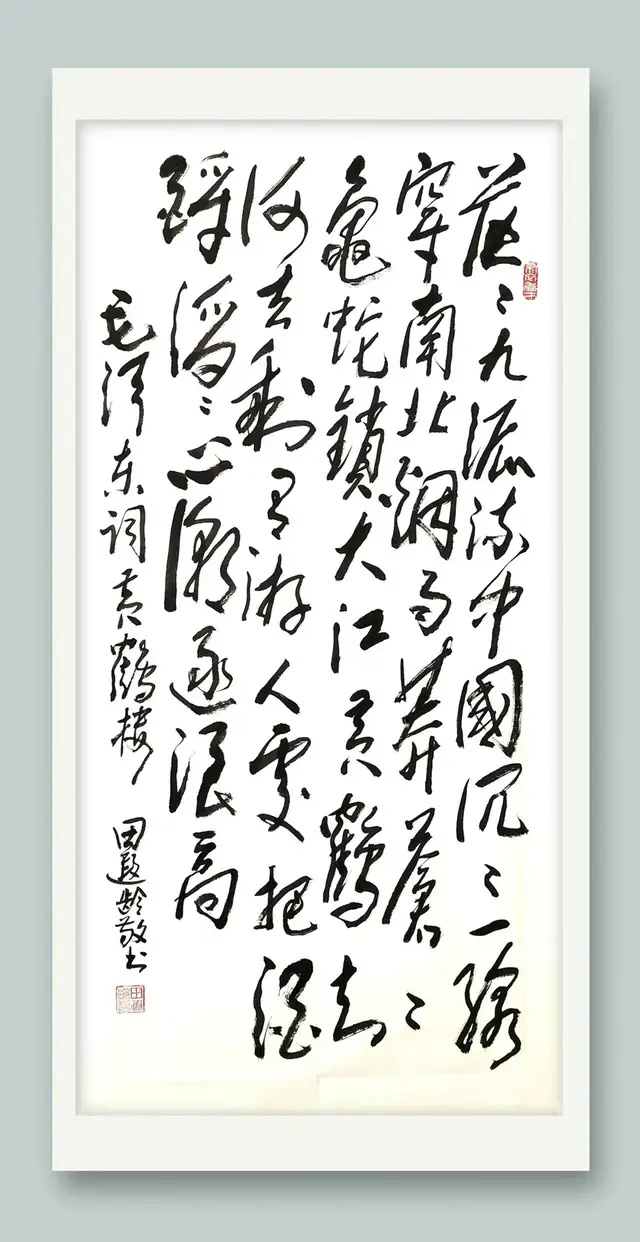 茫〻九派流中國沉〻一線
穿南北烟雨莽蒼〻
龜蛇鎖大江黃鶴知
何去剩有游人處把酒
酹滔〻心潮逐浪高
毛澤東詞黃鶴樓 田遐齡敬书